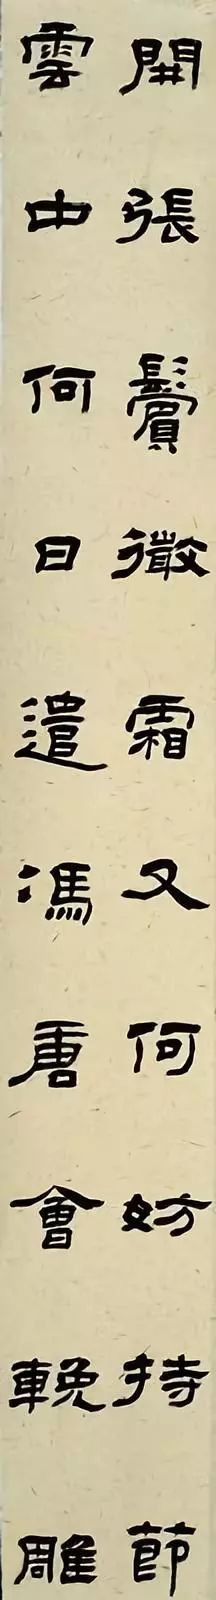 開張鬢微霜又何妨持節
雲中何日遣馮唐會輓雕